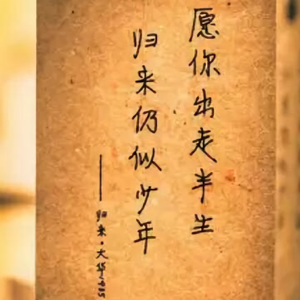 愿你出走半生
归来仍似少年
——归来·大华